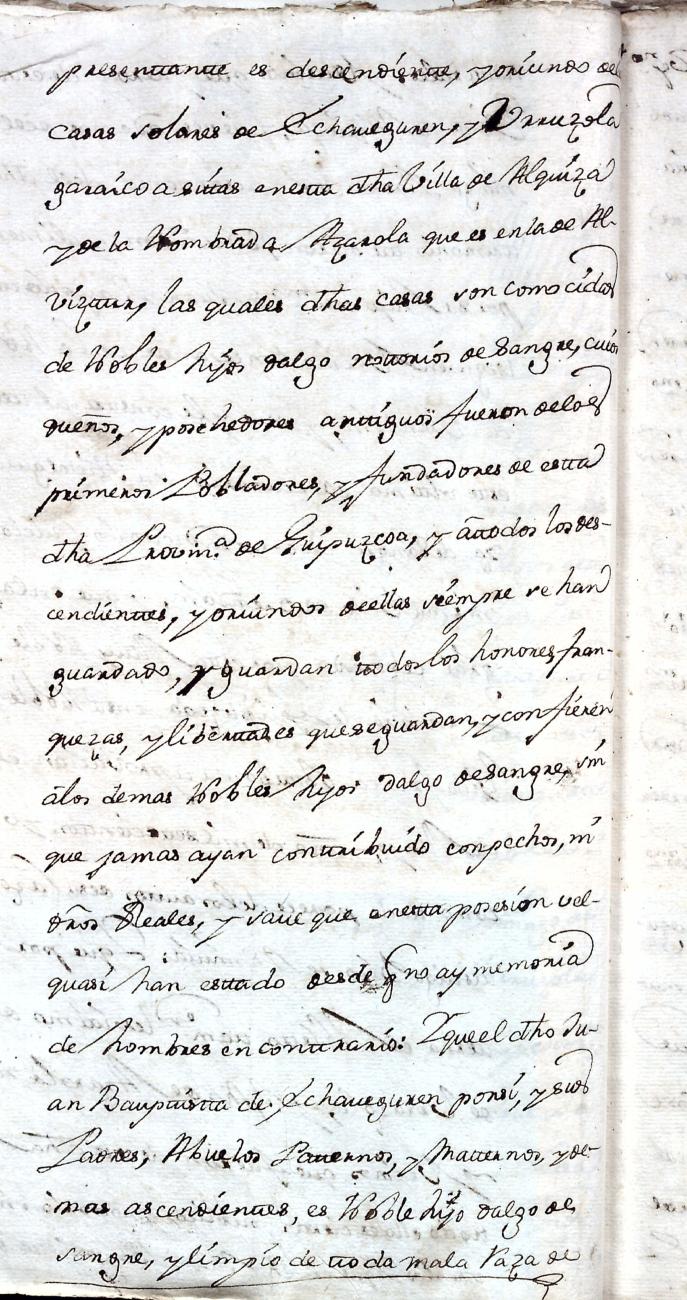 presenttantte es descendientte, y oriundo de
casas solares de Echaveguren, y Urruzola
garaicoa sittas en estta dha Villa de Alquiza
y de la Nombrada Azarola que es en la de Al-
vizttur, las quales dhas casas son conocidas
de Nobles hijos dalgo nottorios de sangre, cuios
dueños, y poschedores anttiguos fueron de los
primeros Pobladores, y fundadores de estta
dha Provin.ª de Guipuzcoa, y a ttodos los des-
cendienttes, y oriundos de ellas siempre se han
guardado, y guardan ttodos los honores, fran-
quezas, y liberttades que se guardan, y confieren
a los demas Nobles hijos dalgo de sangre, sin
que jamas ayan conttribuido con pechos, ni
dr̃os Reales, y save que en esta posesion vel-
quasi han esttado desde q̃ no ay memoria
de hombres en conttrario: Y que el dho Ju-
an Baupttistta de Echaveguren por si, y sus
Padres, Abuelos Patternos, y Matternos, y de-
mas ascendienttes, es Noble hijo dalgo de
sangre, y limpio de ttoda mala Raza de